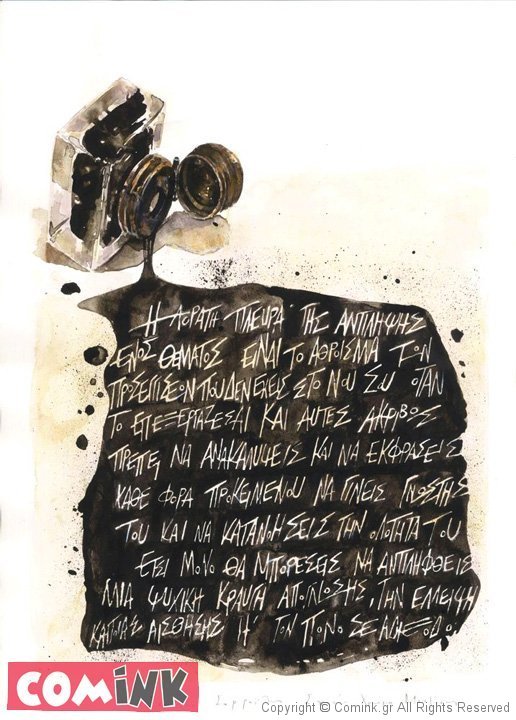 Η ΑΟΡΑΤΗ ΠΛΕΥΡΑ ΤΗΣ ΑΝΤΙΛΗΨΗΣ
ΕΝΟΣ ΘΕΜΑΤΟΣ ΕΙΝΑΙ ΤΟ ΑΘΡΟΙΣΜΑ ΤΩΝ
ΠΡΣΕΓΓΙΣΕΩΝ ΠΟΥ ΔΕΝ ΕΧΕΙΣ ΣΤΟ ΝΟΥ ΣΟΥ ΟΤΑΝ
ΤΟ ΕΠΕΞΕΡΓΑΖΕΣΑΙ ΚΑΙ ΑΥΤΕΣ ΑΚΡΙΒΟΣ
ΠΡΕΠΕΙ ΝΑ ΑΝΑΚΑΛΥΨΕΙΣ ΚΑΙ ΝΑ ΕΚΦΡΑΣΕΙΣ
ΚΑΘΕ ΦΟΡΑ ΠΡΟΚΕΙΜΕΝΟΥ ΝΑ ΓΙΝΕΙΣ ΓΝΩΣΤΗΣ
ΤΟΥ ΚΑΙ ΝΑ ΚΑΤΑΝΟΗΣΕΙΣ ΤΗΝ ΟΛΟΤΗΤΑ ΤΟΥ
ΕΤΣΙ ΜΟΝΟ ΘΑ ΜΠΟΡΕΣΕΙΣ ΝΑ ΑΝΤΙΛΗΦΘΕΙΣ
ΜΙΑ ΨΥΧΙΚΗ ΚΡΑΥΓΗ ΑΠΟΓΝΩΣΗΣ, ΤΗΝ ΕΛΛΕΙΨΗ
ΚΑΠΟΙΑΣ ΑΙΣΘΗΣΗΣ Η΄ ΤΟΝ ΠΟΝΟ ΣΕ
COMINK
Copyright © Comink.gr All Rights Reserved